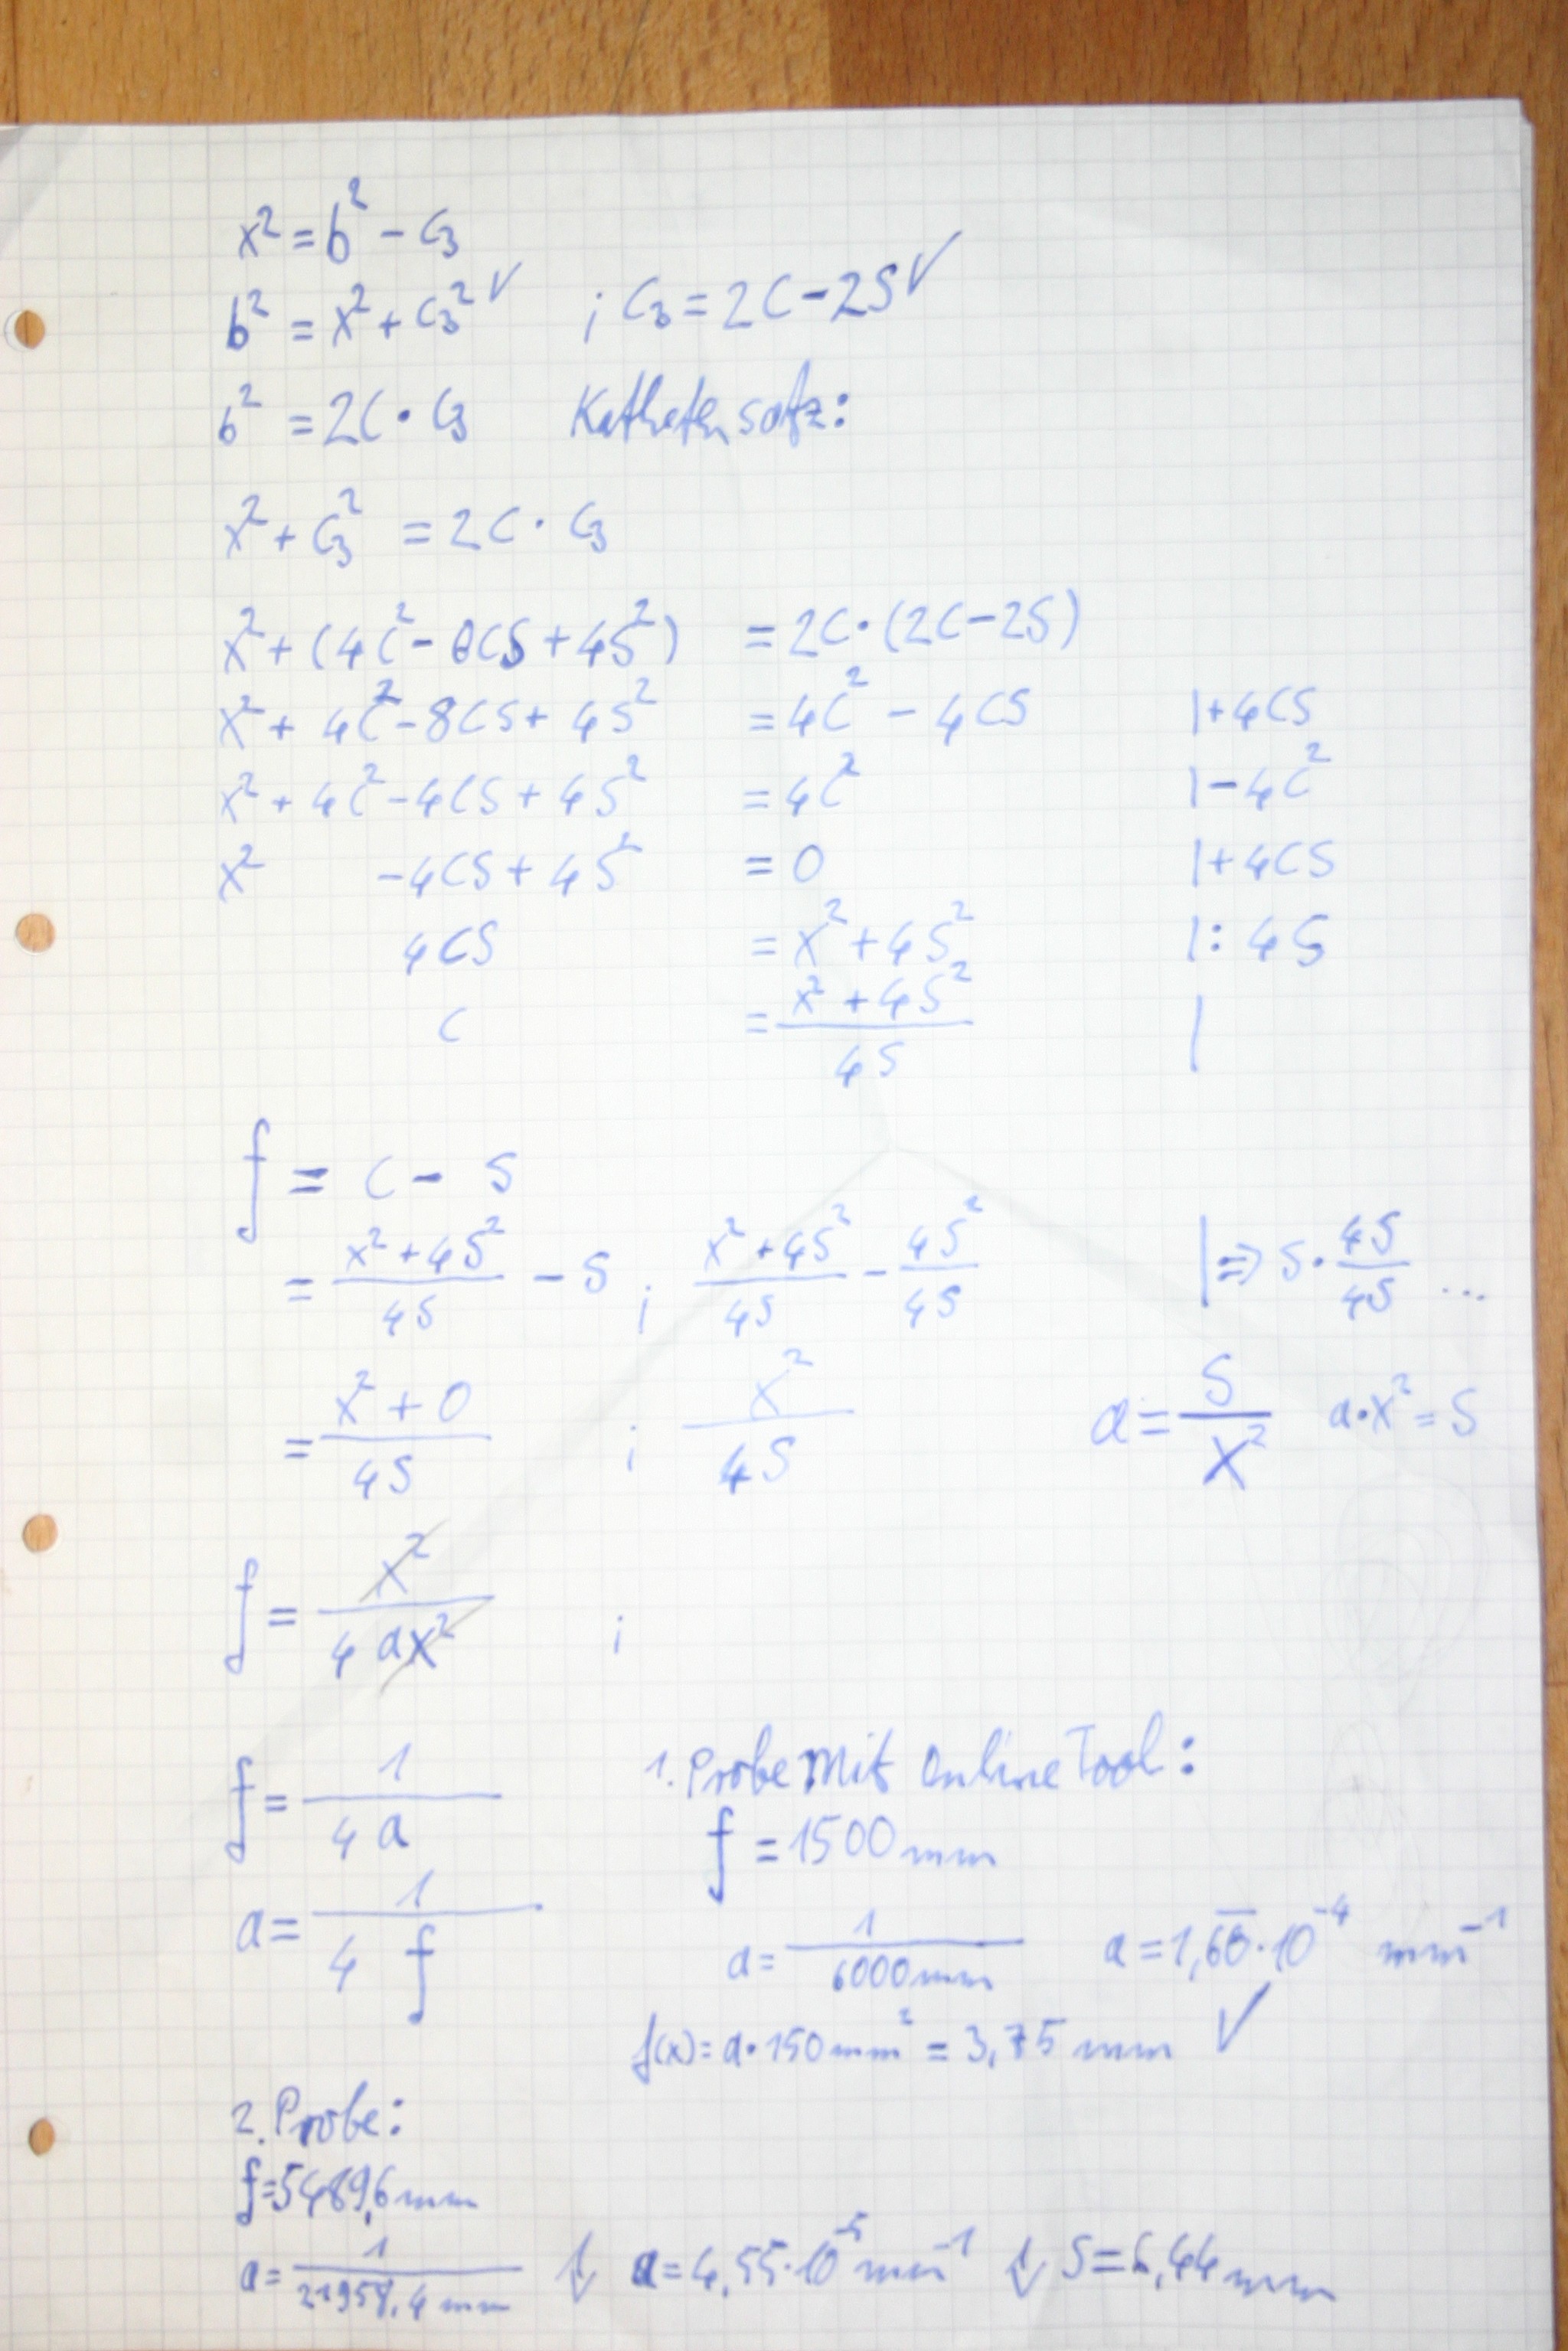 x² = b² - c₃
b² = x² + c₃² ✓ ; c₃ = 2c - 2s ✓
b² = 2c · c₃ Kathetensatz:
x² + c₃² = 2c · c₃
x² + (4c² - 8cs + 4s²) = 2c · (2c - 2s)
x² + 4c² - 8cs + 4s² = 4c² - 4cs | + 4cs
x² + 4c² - 4cs + 4s² = 4c² | - 4c²
x² - 4cs + 4s² = 0 | + 4cs
4cs = x² + 4s² | : 4s
c = (x² + 4s²)/(4s) |
f = c - s
= (x² + 4s²)/(4s) - s ; (x² + 4s²)/(4s) - (4s²)/(4s) | ⇒ s · (4s)/(4s) ...
= (x² + 0)/(4s) ; x²/(4s) a = s/x² a·x² = s
f = x²/(4ax²) ;
f = 1/(4a) 1. Probe Mit Online Tool:
f = 1500 mm
a = 1/(4f) a = 1/(6000 mm) a = 1,66̅ · 10⁻⁴ mm⁻¹
f(x) = a · 150 mm² = 3,75 mm ✓
2. Probe:
f = 5489,6 mm
a = 1/(21958,4 mm) a = 4,55 · 10⁻⁵ mm⁻¹ s = ,44 mm